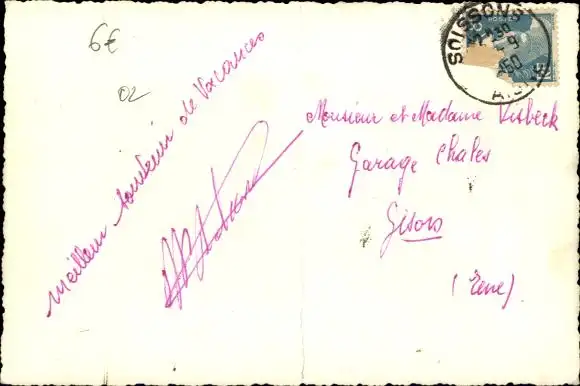 6€
02
SOISSONS
AISNE
POSTES
meilleur souvenir de Vacances
Monsieur et Madame Visbeck
Garage Chales
Gisors
(Eure)